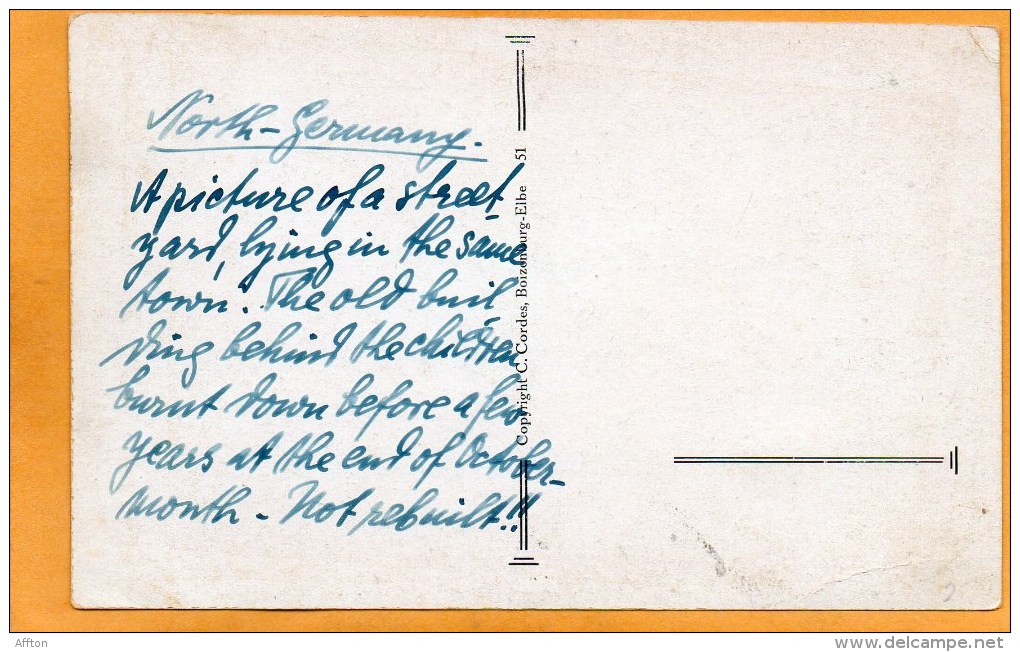 North-Germany.
A picture of a street
yard, lying in the same
town. The old buil
ding behind the children
burnt down before a few
years at the end of October-
month - Not rebuilt!!!
Copyright C. Cordes, Boizenburg-Elbe 51
Affton
www.delcampe.net